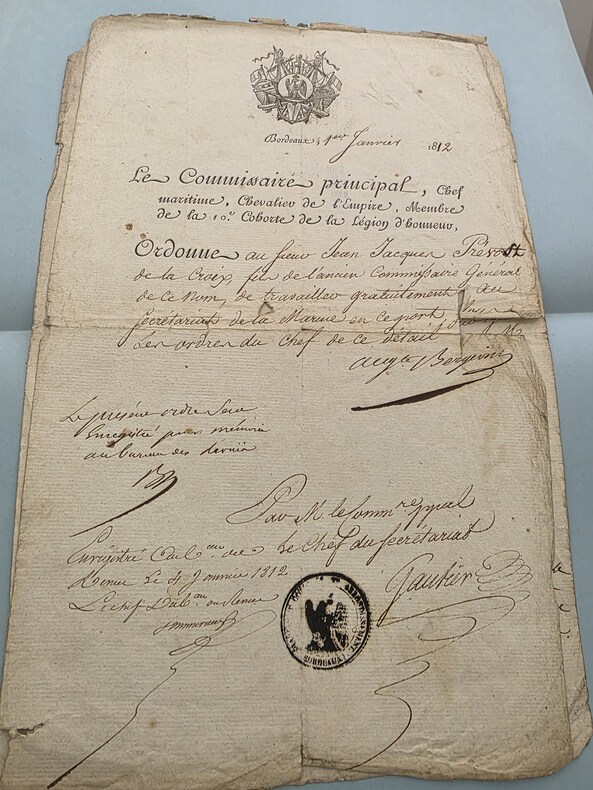 Bordeaux, 1er Janvier 1812
Le Commissaire principal, Chef
maritime, Chevalier de l'Empire, Membre
de la 10e Cohorte de la Légion d'honneur,
Ordonne au sieur Jean Jacques Prévost
de la Croix, fils de l'ancien Commissaire Général
de ce nom, de travailler gratuitement au
Secrétariat de la Marine en ce port
Les ordres du Chef de ce détail
Augte Bergevin
Le présent ordre sera
Enregistré pour mémoire
au bureau des
Par M. le Commre ppal
Le Chef du Secrétariat
Gautier
Enregistré au Bau des
Revues Le 4 Janvier 1812
Le chef Du Bau des Revues
BORDEAUX